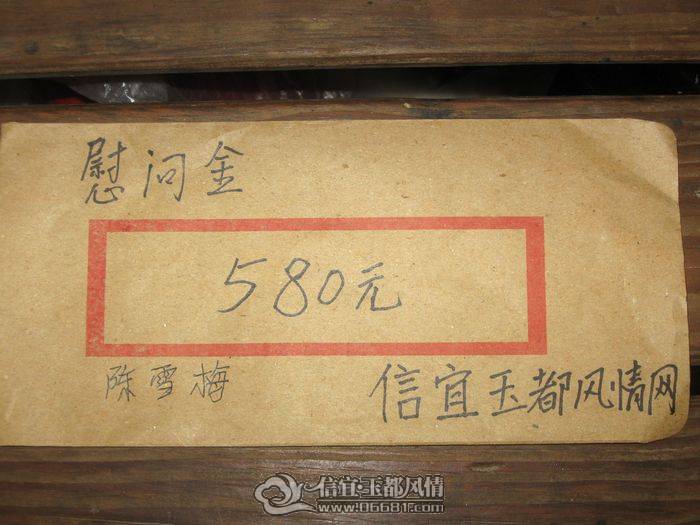 慰问金
580元
陈雪梅
信宜玉都风情网
信宜·玉都风情
www.06681.com